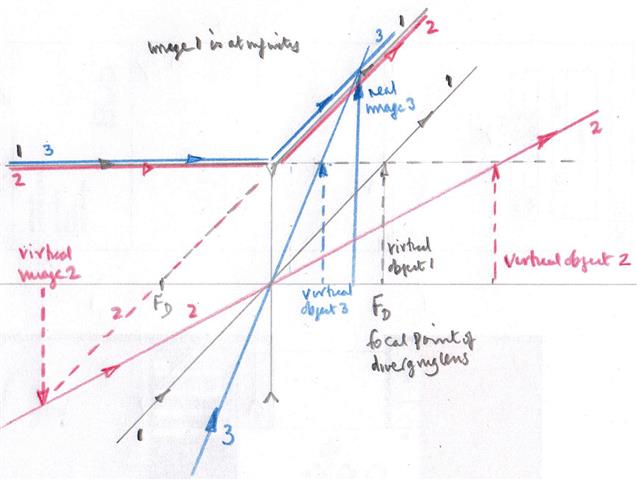 image 1 is at infinity
1
3
2
3
1
2
real
image 3
1
2
1 3
2
virtual
image 2
virtual
object 1
virtual object 2
virtual
object 3
2
F_D
2
F_D
focal point of
diverging lens
1
3